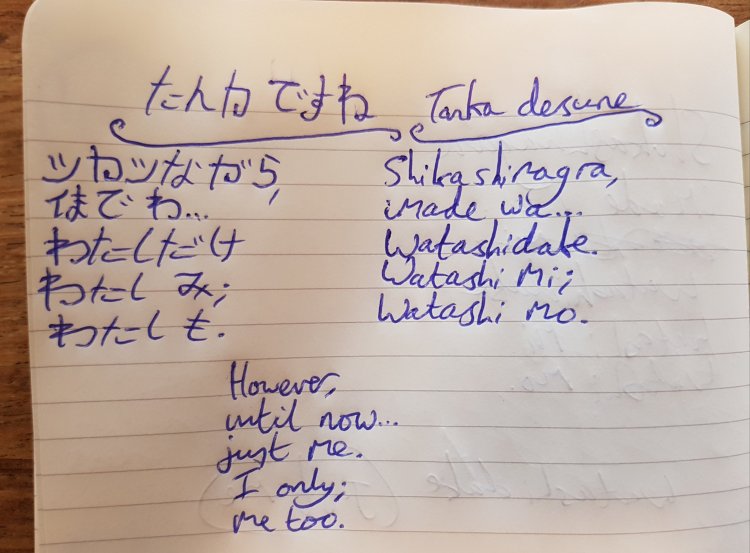 たんカ ですね
Tanka desune
ツカツながら,
イまで わ...
わたしだけ
わたし み;
わたし も.
Shikashinagra,
imade wa...
Watashidake.
Watashi Mi;
Watashi Mo.
However,
until now...
just me.
I only;
me too.